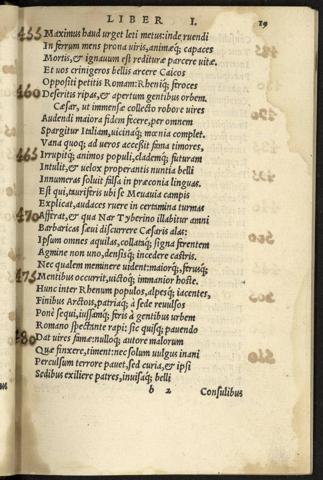 LIBER I. 19
455 Maximus haud urget leti metus: inde ruendi
In ferrum mens prona uiris, animæq; capaces
Mortis, & ignauum est redituræ parcere uitæ.
Et uos crinigeros bellis arcere Caicos
Oppositi petitis Romam: Rheniq; feroces
460 Deseritis ripas, & apertum gentibus orbem.
Cæsar, ut immensæ collecto robore uires
Audendi maiora fidem fecere, per omnem
Spargitur Italiam, uicinaq; mœnia complet.
Vana quoq; ad ueros accessit fama timores,
465 Irrupitq; animos populi, clademq; futuram
Intulit, & uelox properantis nuntia belli
Innumeras soluit falsa in præconia linguas.
Est qui, tauriferis ubi se Meuania campis
Explicat, audaces ruere in certamina turmas
470 Afferat, & qua Nar Tyberino illabitur amni
Barbaricas sæui discurrere Cæsaris alas:
Ipsum omnes aquilas, collataq; signa ferentem
Agmine non uno, densisq; incedere castris.
Nec qualem meminere uident: maiorq;, ferusq;
475 Mentibus occurrit, uictoq; immanior hoste.
Hunc inter Rhenum populos, alpesq; iacentes,
Finibus Arctois, patriaq; à sede reuulsos
Ponè sequi, iussamq; feris à gentibus urbem
Romano spectante rapi: sic quisq; pauendo
480 Dat uires famæ: nulloq; autore malorum
Quæ finxere, timent: nec solum uulgus inani
Perculsum terrore pauet, sed curia, & ipsi
Sedibus exiliere patres, inuisaq; belli
b 2 Consulibus